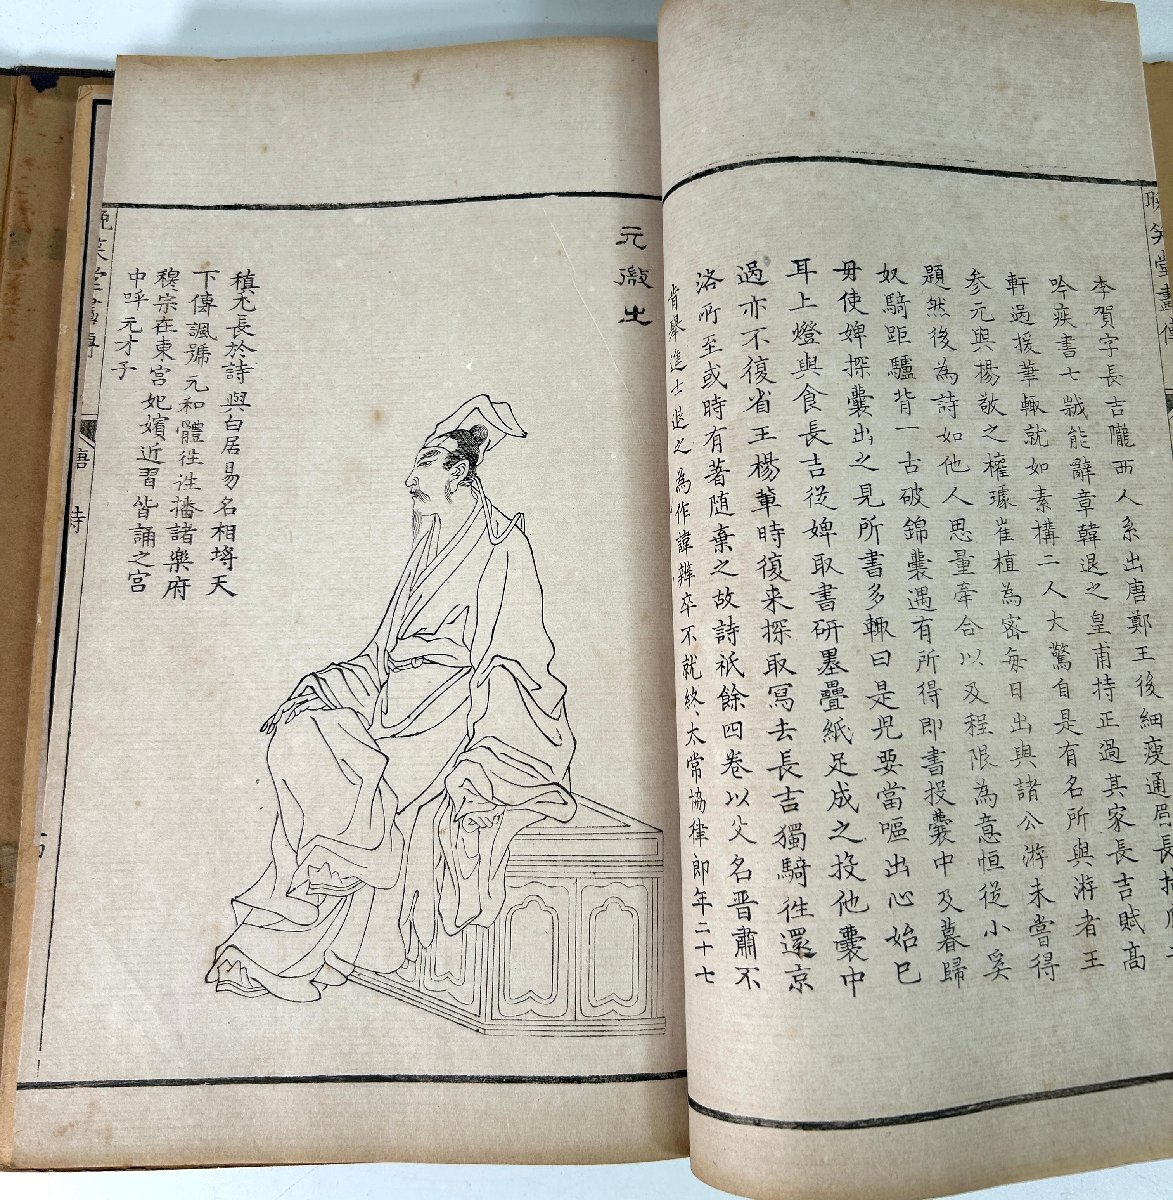 晚笑堂畫傳
李賀字長吉隴西人系出唐鄭王後細瘦通眉長指
吟疾書七歲能辭章韓退之皇甫持正過其家長吉賦高
軒過援筆輒就如素構二人大驚自是有名所與游者王
參元與楊敬之權璩崔植為密每日出與諸公游未嘗得
題然後為詩如他人思量牽合以及程限為意恒從小奚
奴騎距驢背一古破錦囊遇有所得即書投囊中及暮歸
毋使婢探囊出之見所書多輒曰是兒要當嘔出心始已
耳上燈與食長吉從婢取書研墨疊紙足成之投他囊中
過亦不復省王楊輩時復来探取寫去長吉獨騎徃還京
洛所至或時有著随棄之故詩祇餘四卷以父名晋肅不
肯舉進士退之為作諱辨卒不就終太常協律郎年二十七
元微之
稹尤長於詩與白居易名相埓天
下傳諷號元和體徃徃播諸樂府
穆宗在東宮妃嬪近習皆誦之宮
中呼元才子
晚笑堂畫傳
唐
詩